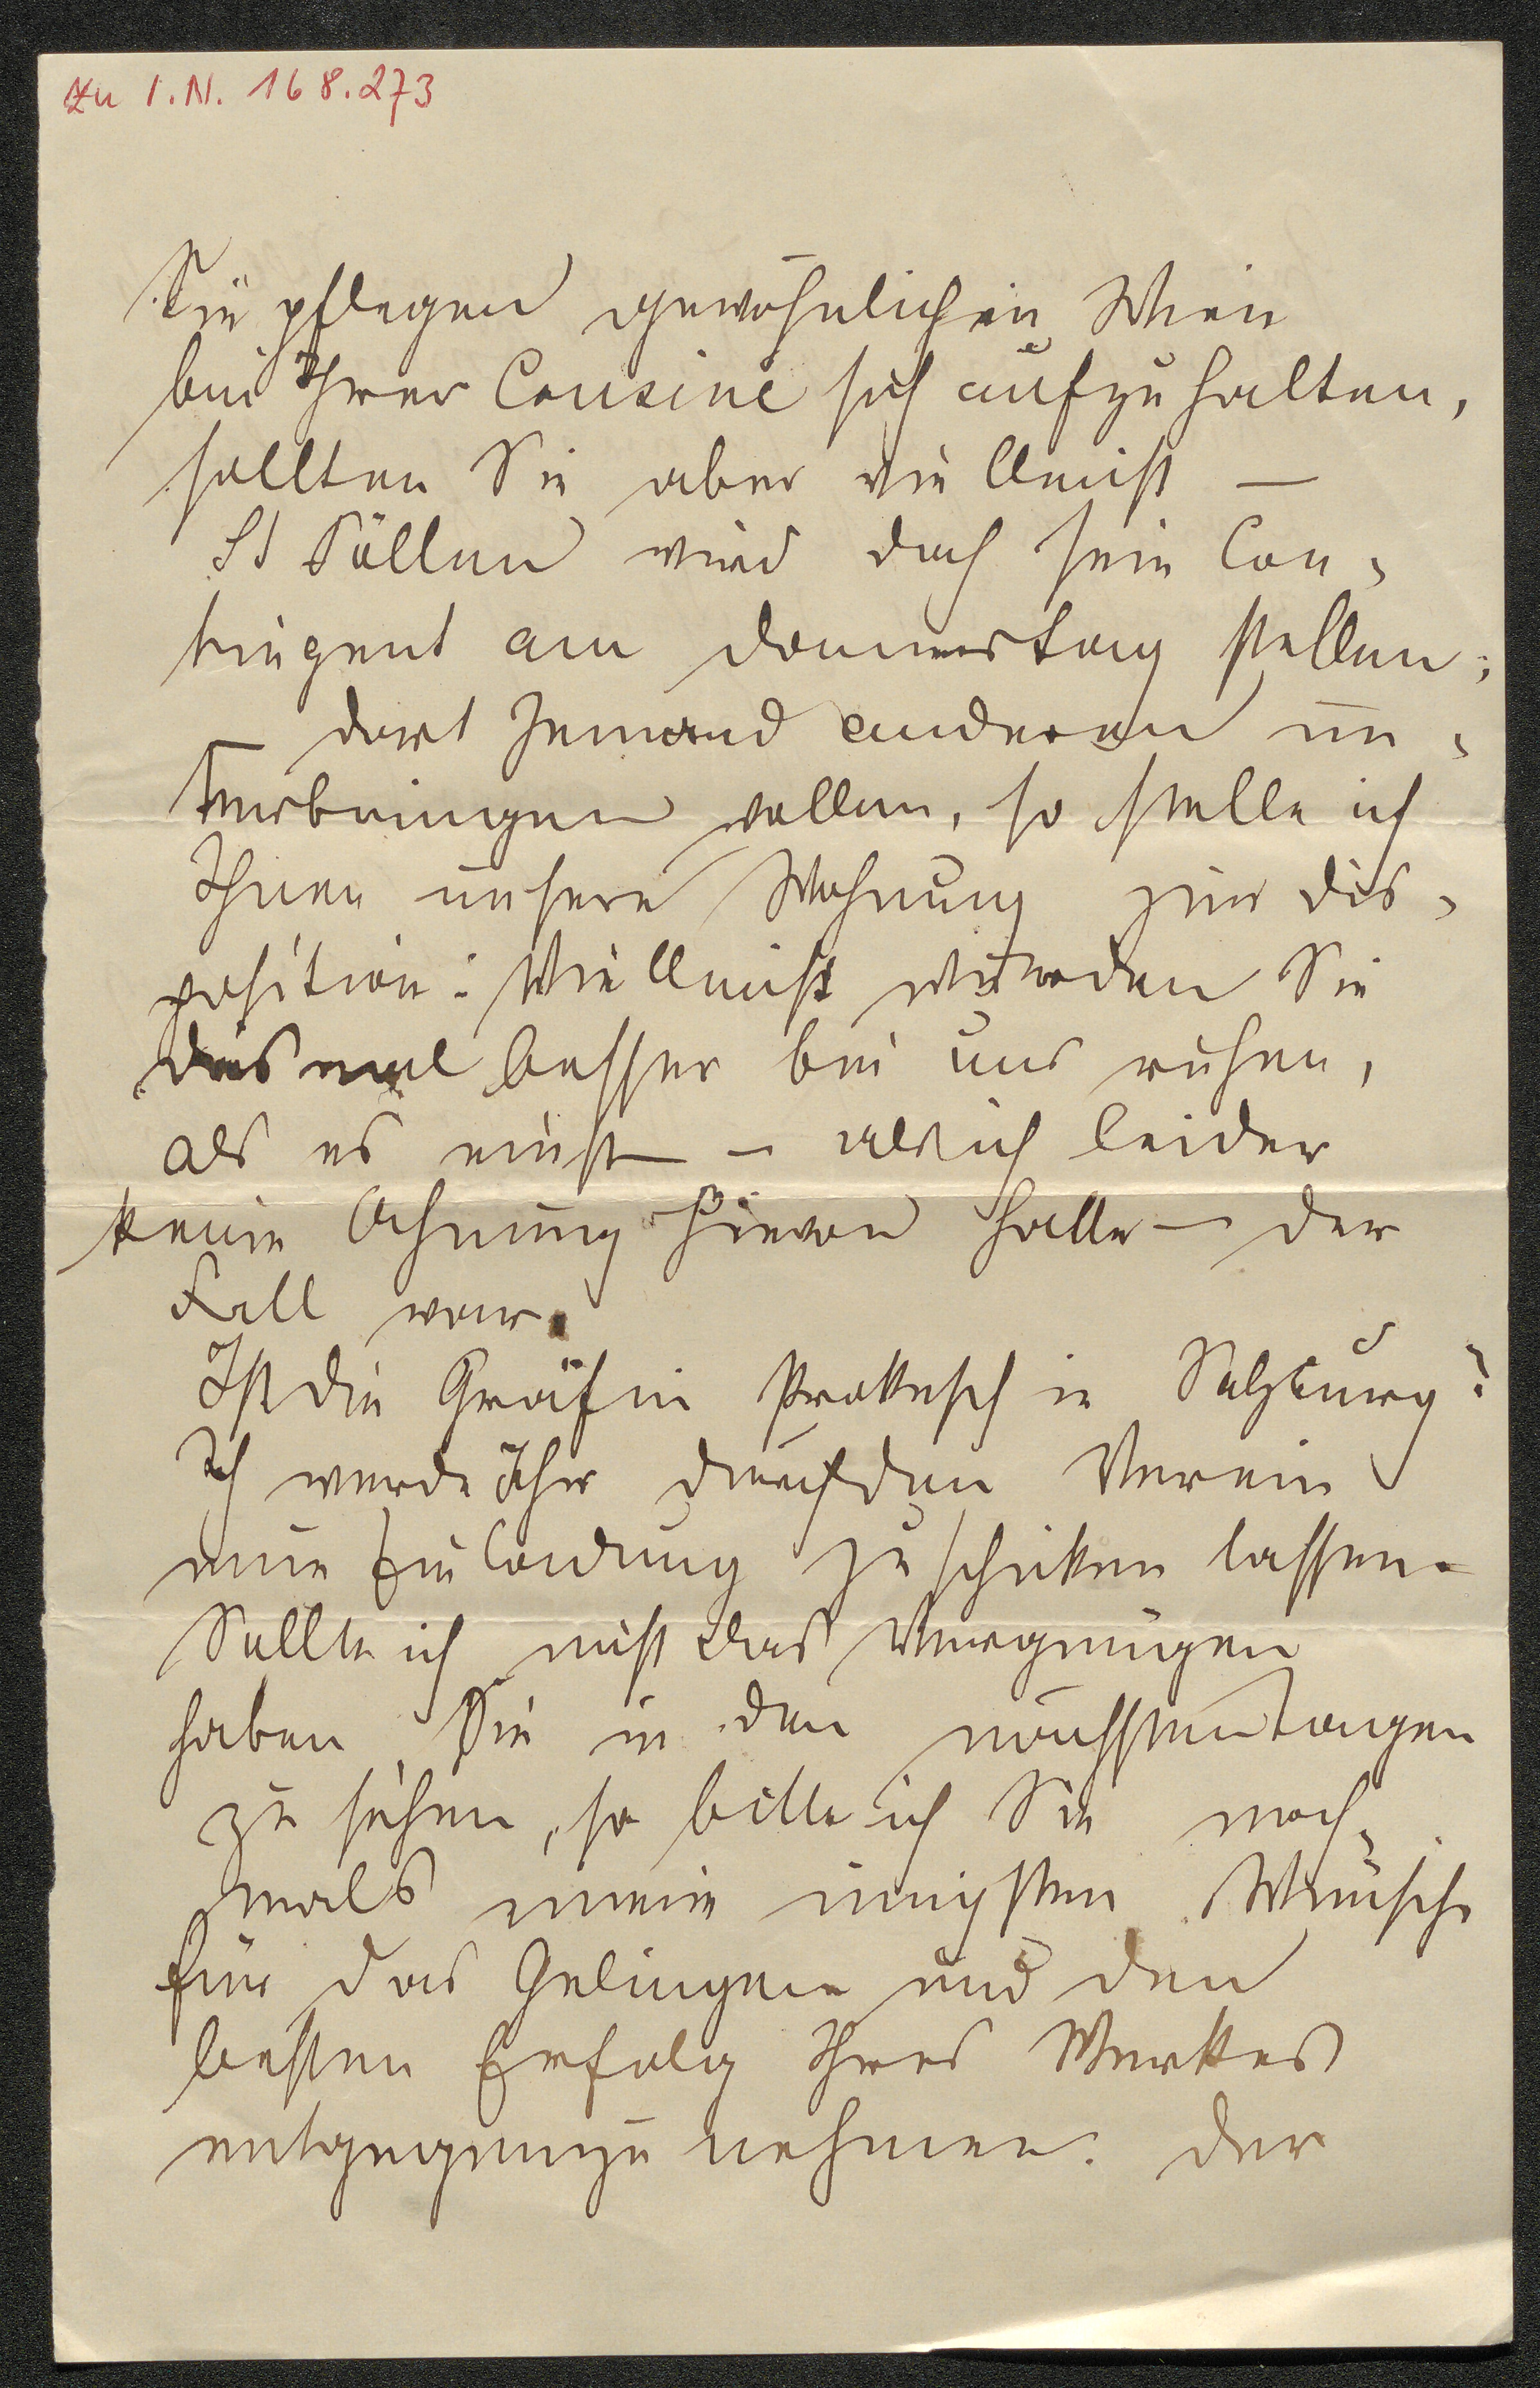 zu I.N. 168.273
Sie pflegen gewöhnlich in Wien
bei Ihrer Cousine sich aufzuhalten,
sollten Sie aber vielleicht —
St Pölten wird doch sein Con-
tingent am Donnerstag stellen;
— dort Jemand anderen un-
terbringen wollen, so stelle ich
Ihnen unsere Wohnung zur Dis-
position: Vielleicht würden Sie
dasmal besser bei uns ruhen,
als es einst — als ich leider
keine Ahnung hievon hatte — der
Fall war.
Ist die Gräfin Prokesch in Salzburg?
Ich werde Ihr durch den Verein
eine Einladung zuschicken lassen.
Sollte ich nicht das Vergnügen
haben, Sie in den nächsten Tagen
zu sehen, so bitte ich Sie noch-
mals meine innigsten Wünsche
für das Gelingen und den
besten Erfolg Ihres Werkes
entgegenzunehmen. Der